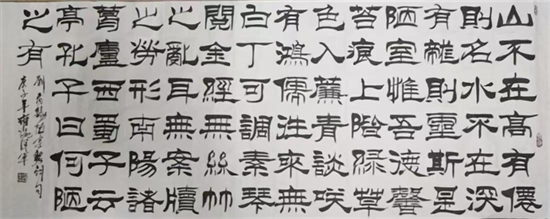 山不在高有僊
則名水不在深
有龍則靈斯是
陋室惟吾德馨
苔痕上階綠草
色入簾青談咲
有鴻儒往來無
白丁可調素琴
閱金經無絲竹
之亂耳無案牘
之勞形南陽諸
葛廬西蜀子云
亭孔子曰何陋
之有
劉禹錫陋室銘詩句
庚子年